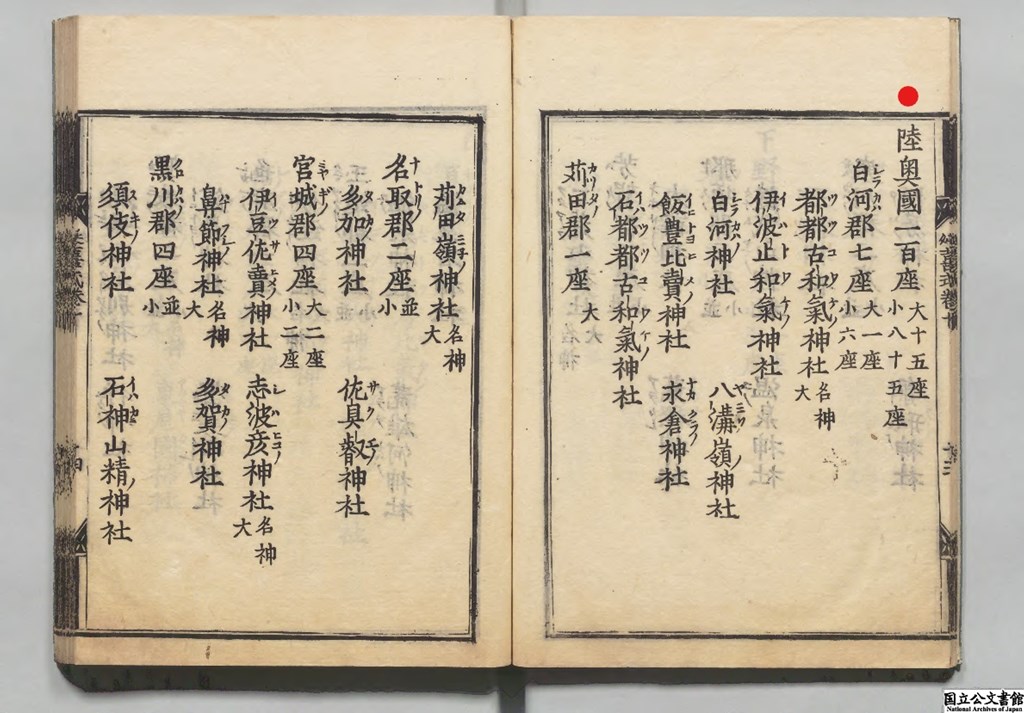 陸奥國一百座 大十五座 小八十五座
白河郡七座 大一座 小六座
都都古和氣神社 名神大
伊波止和氣神社
白河神社 八溝嶺神社
飯豊比賣神社 永倉神社
石都都古和氣神社
苅田郡一座 大
苅田嶺神社 名神大
名取郡二座 並小
多加神社 佐具叡神社
宮城郡四座 大二座 小二座
伊豆佐賣神社 志波彦神社 名神大
鼻節神社 名神大 多賀神社
黒川郡四座 並小
須伎神社 石神山精神社
国立公文書館
National Archives of Japan